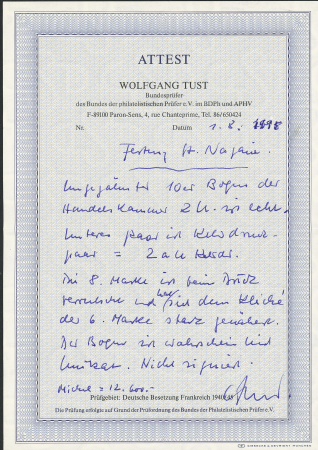 ATTEST
WOLFGANG TUST
Bundesprüfer
des Bundes der philatelistischen Prüfer e.V. im BDPh und APHV
F-89100 Paron-Sens, 4, rue Chanteprime, Tel. 86/650424
Nr. Datum 1. 2. 1998
Festung St. Nazaire.
Ungezähnter 10er Bogen der
Handelskammer 2 U. ist echt.
Unteres Paar ist Kehrdruck-
paar = 2 a U Kdr.
Die 8. Marke ist beim Druck
verrutscht und hat sich dem Klischee
der 6. Marke stark genähert.
Der Bogen ist wahrscheinlich
Unikat. Nicht signiert.
Michel = 12.600.-
Prüfgebiet: Deutsche Besetzung Frankreich 1940/45
Die Prüfung erfolgte auf Grund der Prüfordnung des Bundes der Philatelistischen Prüfer e.V.